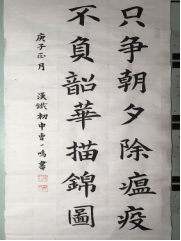 只争朝夕除瘟疫
不負韶華描錦圖
庚子正月
漢鐵初中雷一鳴書